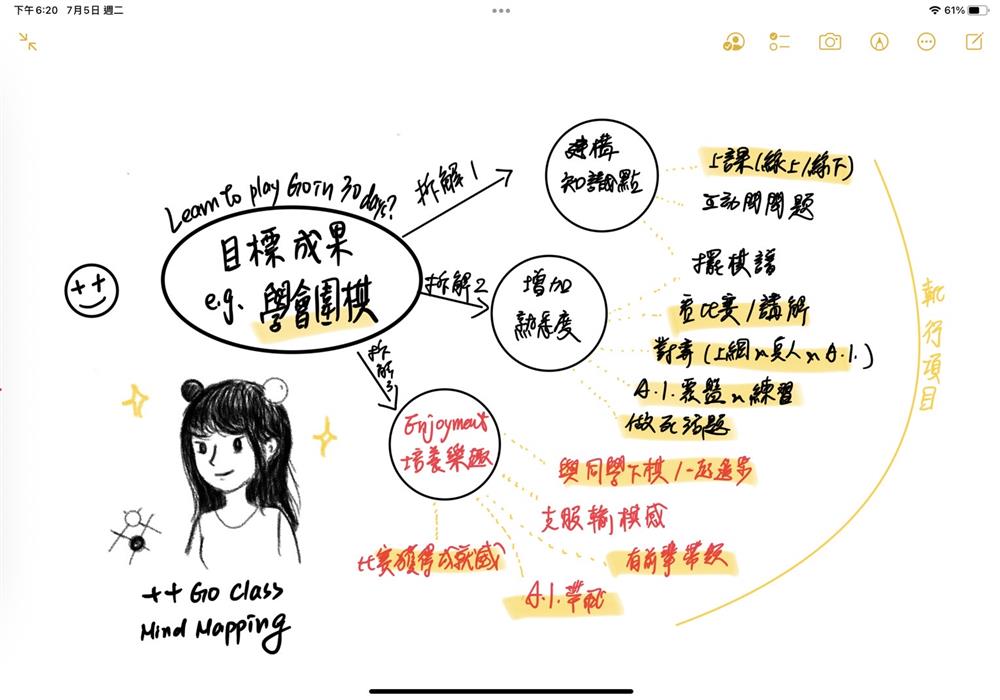 下午6:20 7月5日 週二
61%
Learn to play Go in 30 days?
目標成果
e.g. 學會圍棋
拆解1
拆解2
拆解3
建構
知識點
上課(線上/線下)
互動問問題
增加
熟悉度
擺棋譜
看比賽/講解
對弈(上網x真人x A.I.)
A.I.覆盤x練習
做死活題
Enjoyment
培養樂趣
與同學下棋/一起進步
克服輸棋感
有前輩帶領
A.I.
比賽獲得成就感
執行項目
++
++ Go Class
Mind Mapping